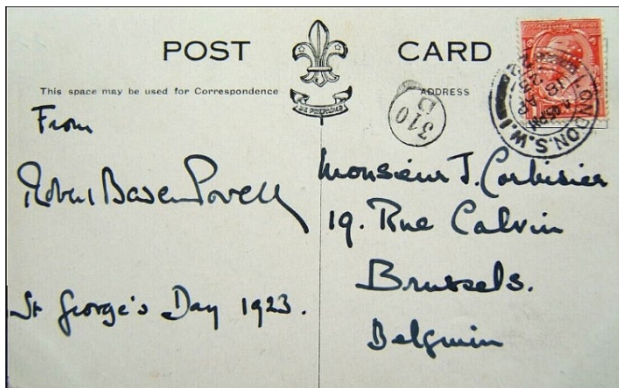 POST CARD
BE PREPARED
This space may be used for Correspondence
ADDRESS
310
D
LONDON.S.W.1
From
Robert Baden Powell
St George's Day 1923.
Monsieur J. Corbisier
19. Rue Calvin
Brussels.
Belgium